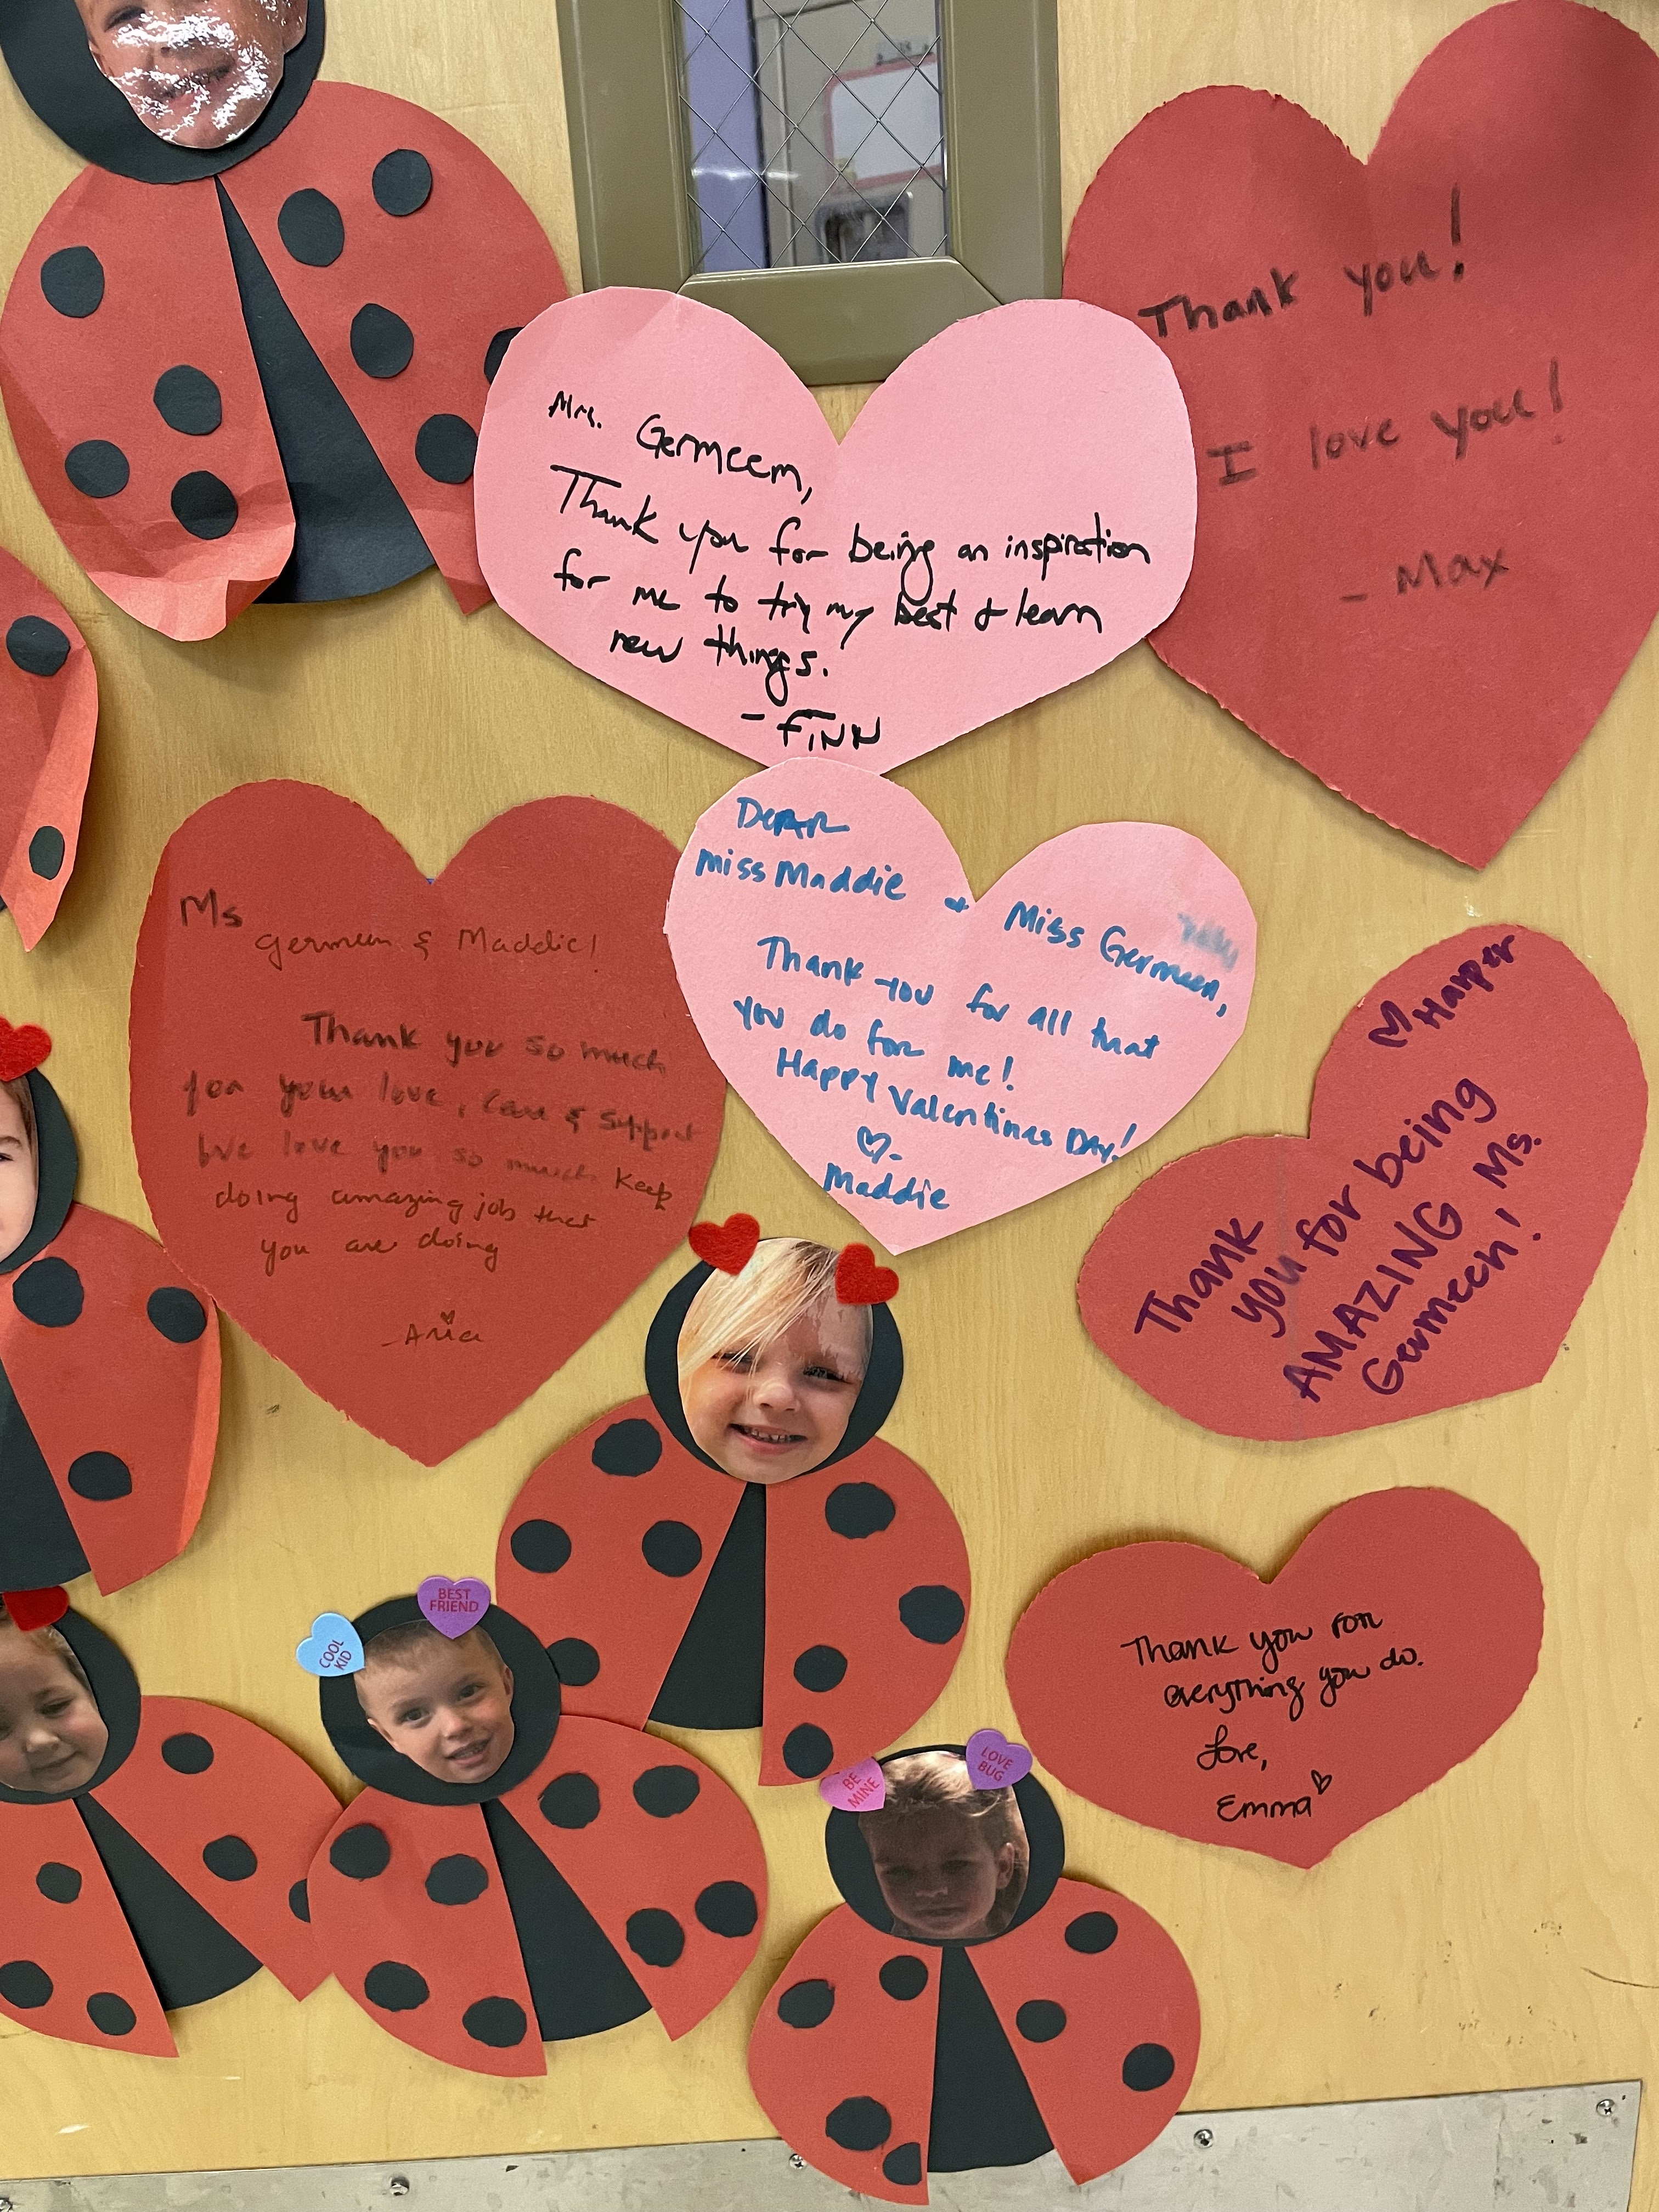 Thank you!
I love you!
- Max
Mrs. Germeem,
Thank you for being an inspiration
for me to try my best & learn
new things.
- FINN
Dear
Miss Maddie & Miss Germeen,
Thank you for all that
you do for me!
Happy Valentines DAY!
♡-
Maddie
Ms
Germeen & Maddie!
Thank you so much
for your love, care & support
We love you so much keep
doing amazing job that
you are doing
- Aria
♡ Harper
Thank
you for being
AMAZING Ms.
Germeen!
Thank you for
everything you do.
Love,
Emma ♡
BEST
FRIEND
COOL
KID
BE
MINE
LOVE
BUG